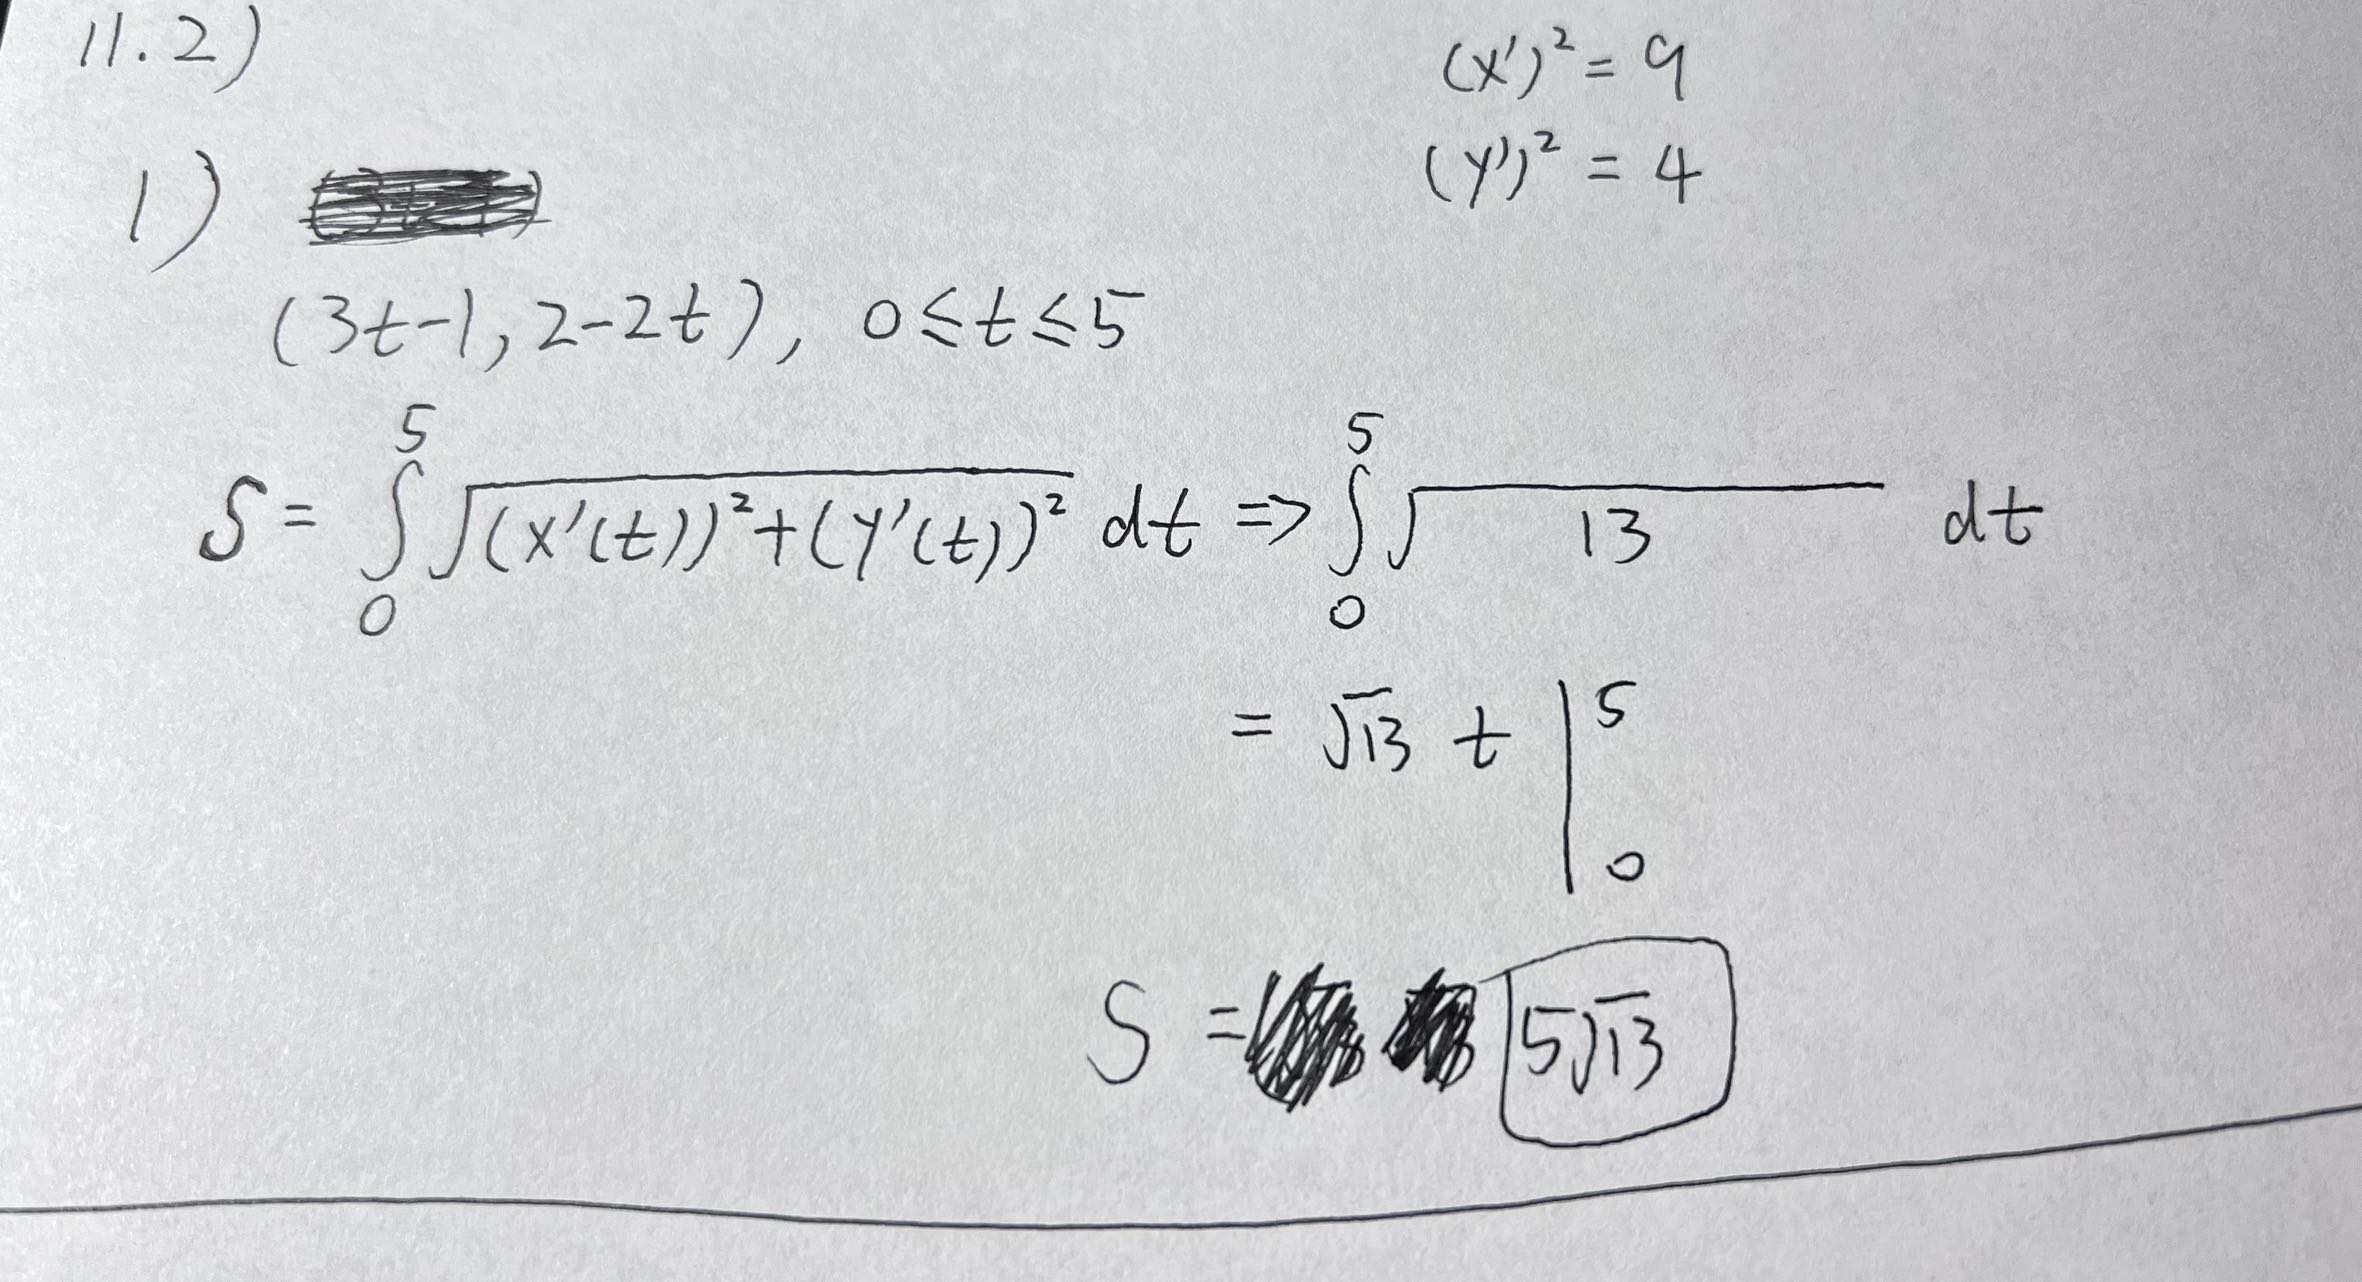 11.2)
(x')² = 9
(y')² = 4
1)
(3t-1, 2-2t), 0≤t≤5
S = ∫₀⁵ √((x'(t))²+(y'(t))²) dt => ∫₀⁵ √13 dt
= √13 t |₀⁵
S = 5√13